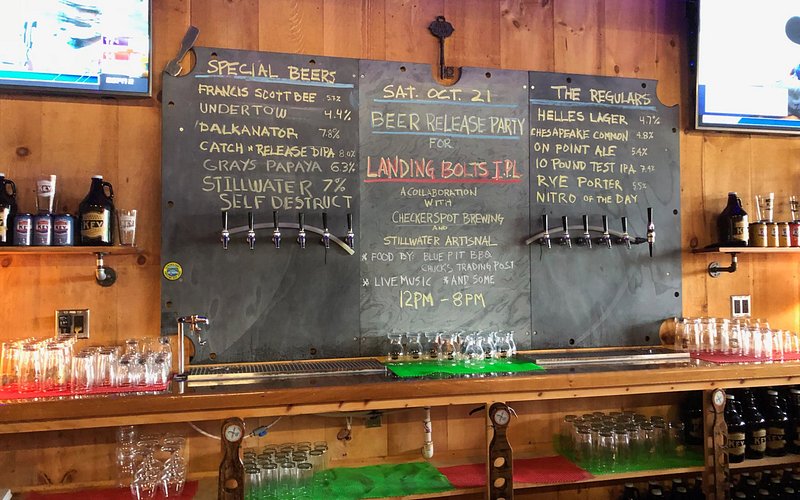 SPECIAL BEERS
FRANCIS SCOTT BEE 5.7%
UNDERTOW 4.4%
DALKANATOR 7.8%
CATCH N RELEASE DIPA 8.0%
GRAYS PAPAYA 6.3%
STILLWATER 7%
SELF DESTRUCT
SAT. OCT. 21
BEER RELEASE PARTY
FOR
LANDING BOLTS I.P.L
A COLLABORATION
WITH
CHECKERSPOT BREWING
AND
STILLWATER ARTISNAL
* FOOD BY: BLUE PIT BBQ
CHUCK'S TRADING POST
* LIVE MUSIC * AND SOME
12PM - 8PM
THE REGULARS
HELLES LAGER 4.7%
CHESAPEAKE COMMON 4.8%
ON POINT ALE 5.4%
10 POUND TEST IPA 7.4%
RYE PORTER 5.5%
NITRO OF THE DAY
ESPN2
KEY
KEY
KEY